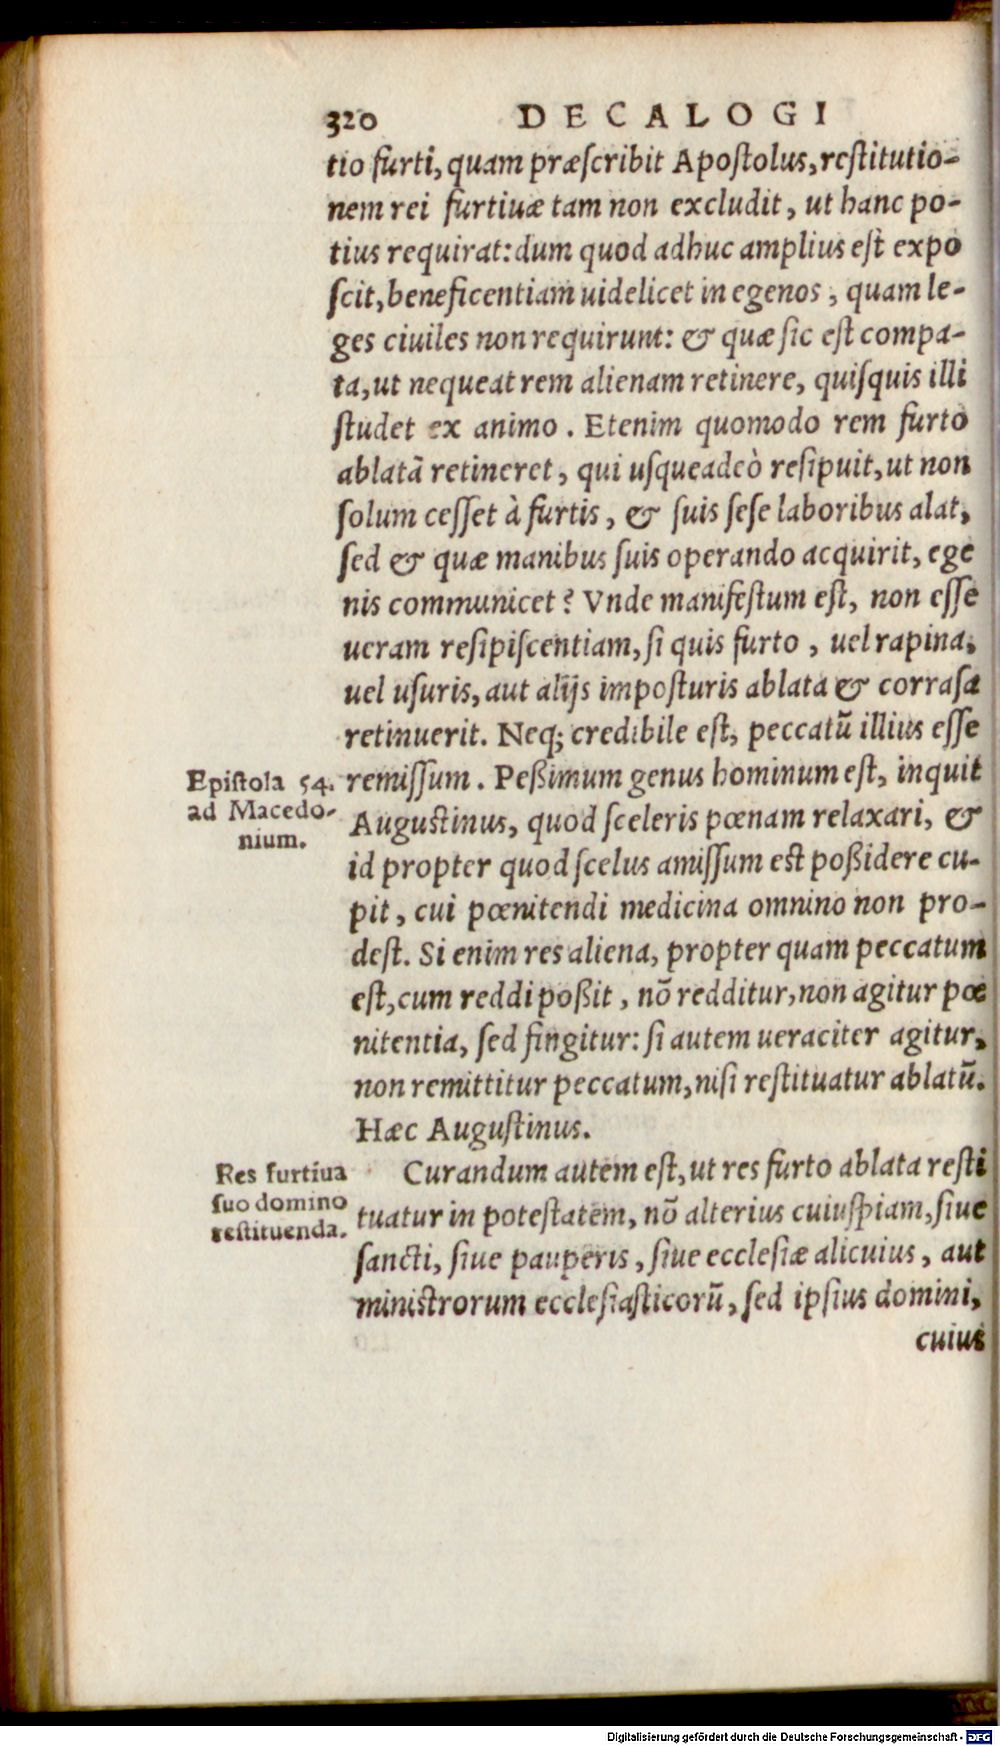 320 DECALOGI
tio furti, quam præſcribit Apoſtolus, reſtitutio-
nem rei furtiuæ tam non excludit, ut hanc po-
tius requirat: dum quod adhuc amplius eſt expo
ſcit, beneficentiam uidelicet in egenos, quam le-
ges ciuiles non requirunt: & quæ ſic eſt compa-
ta, ut nequeat rem alienam retinere, quiſquis illi
ſtudet ex animo. Etenim quomodo rem furto
ablatā retineret, qui uſqueadeò reſipuit, ut non
ſolum ceſſet à furtis, & ſuis ſeſe laboribus alat,
ſed & quæ manibus ſuis operando acquirit, ege
nis communicet? Vnde manifeſtum eſt, non eſſe
ueram reſipiſcentiam, ſi quis furto, uel rapina,
uel uſuris, aut alijs impoſturis ablata & corraſa
retinuerit. Neq; credibile eſt, peccatū illius eſſe
Epiſtola 54.
ad Macedo-
nium.
remiſſum. Peßimum genus hominum eſt, inquit
Auguſtinus, quod ſceleris pœnam relaxari, &
id propter quod ſcelus amiſſum eſt poßidere cu-
pit, cui pœnitendi medicina omnino non pro-
deſt. Si enim res aliena, propter quam peccatum
eſt, cum reddi poßit, nō redditur, non agitur pœ
nitentia, ſed fingitur: ſi autem ueraciter agitur,
non remittitur peccatum, niſi reſtituatur ablatū.
Hæc Auguſtinus.
Res furtiua
ſuo domino
reſtituenda.
Curandum autem eſt, ut res furto ablata reſti
tuatur in poteſtatem, nō alterius cuiuſpiam, ſiue
ſancti, ſiue pauperis, ſiue eccleſiæ alicuius, aut
miniſtrorum eccleſiaſticorū, ſed ipſius domini,
cuius
Digitalisierung gefördert durch die Deutsche Forschungsgemeinschaft - DFG